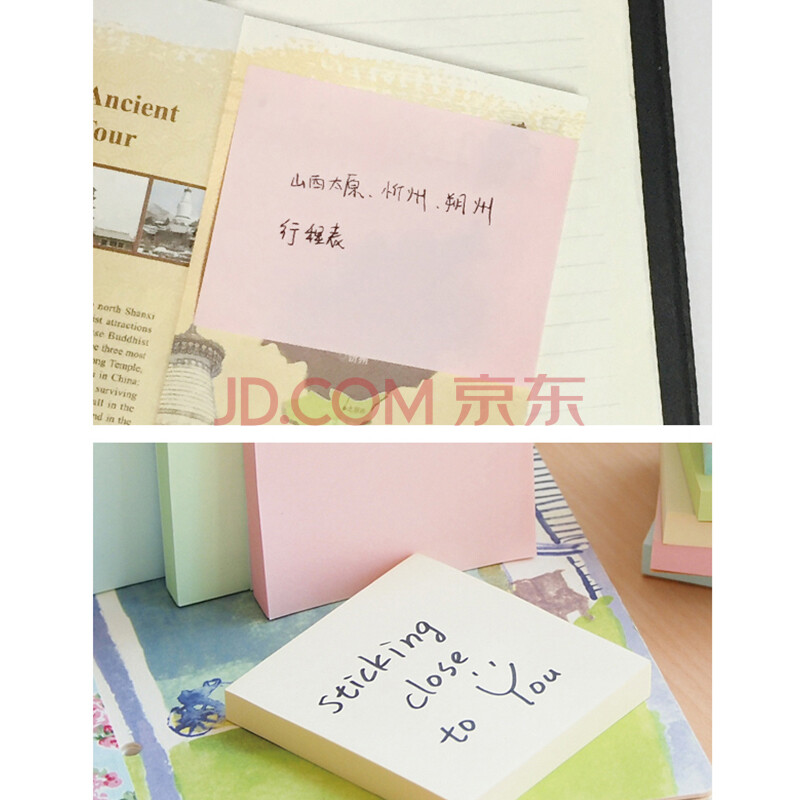 Ancient
Tour
山西太原、忻州、朔州
行程表
north Shanxi
attractions
Buddhist
three most
Temple,
in China:
surviving
all in the
and in the
忻州
JD.COM 京东
sticking
close
to You